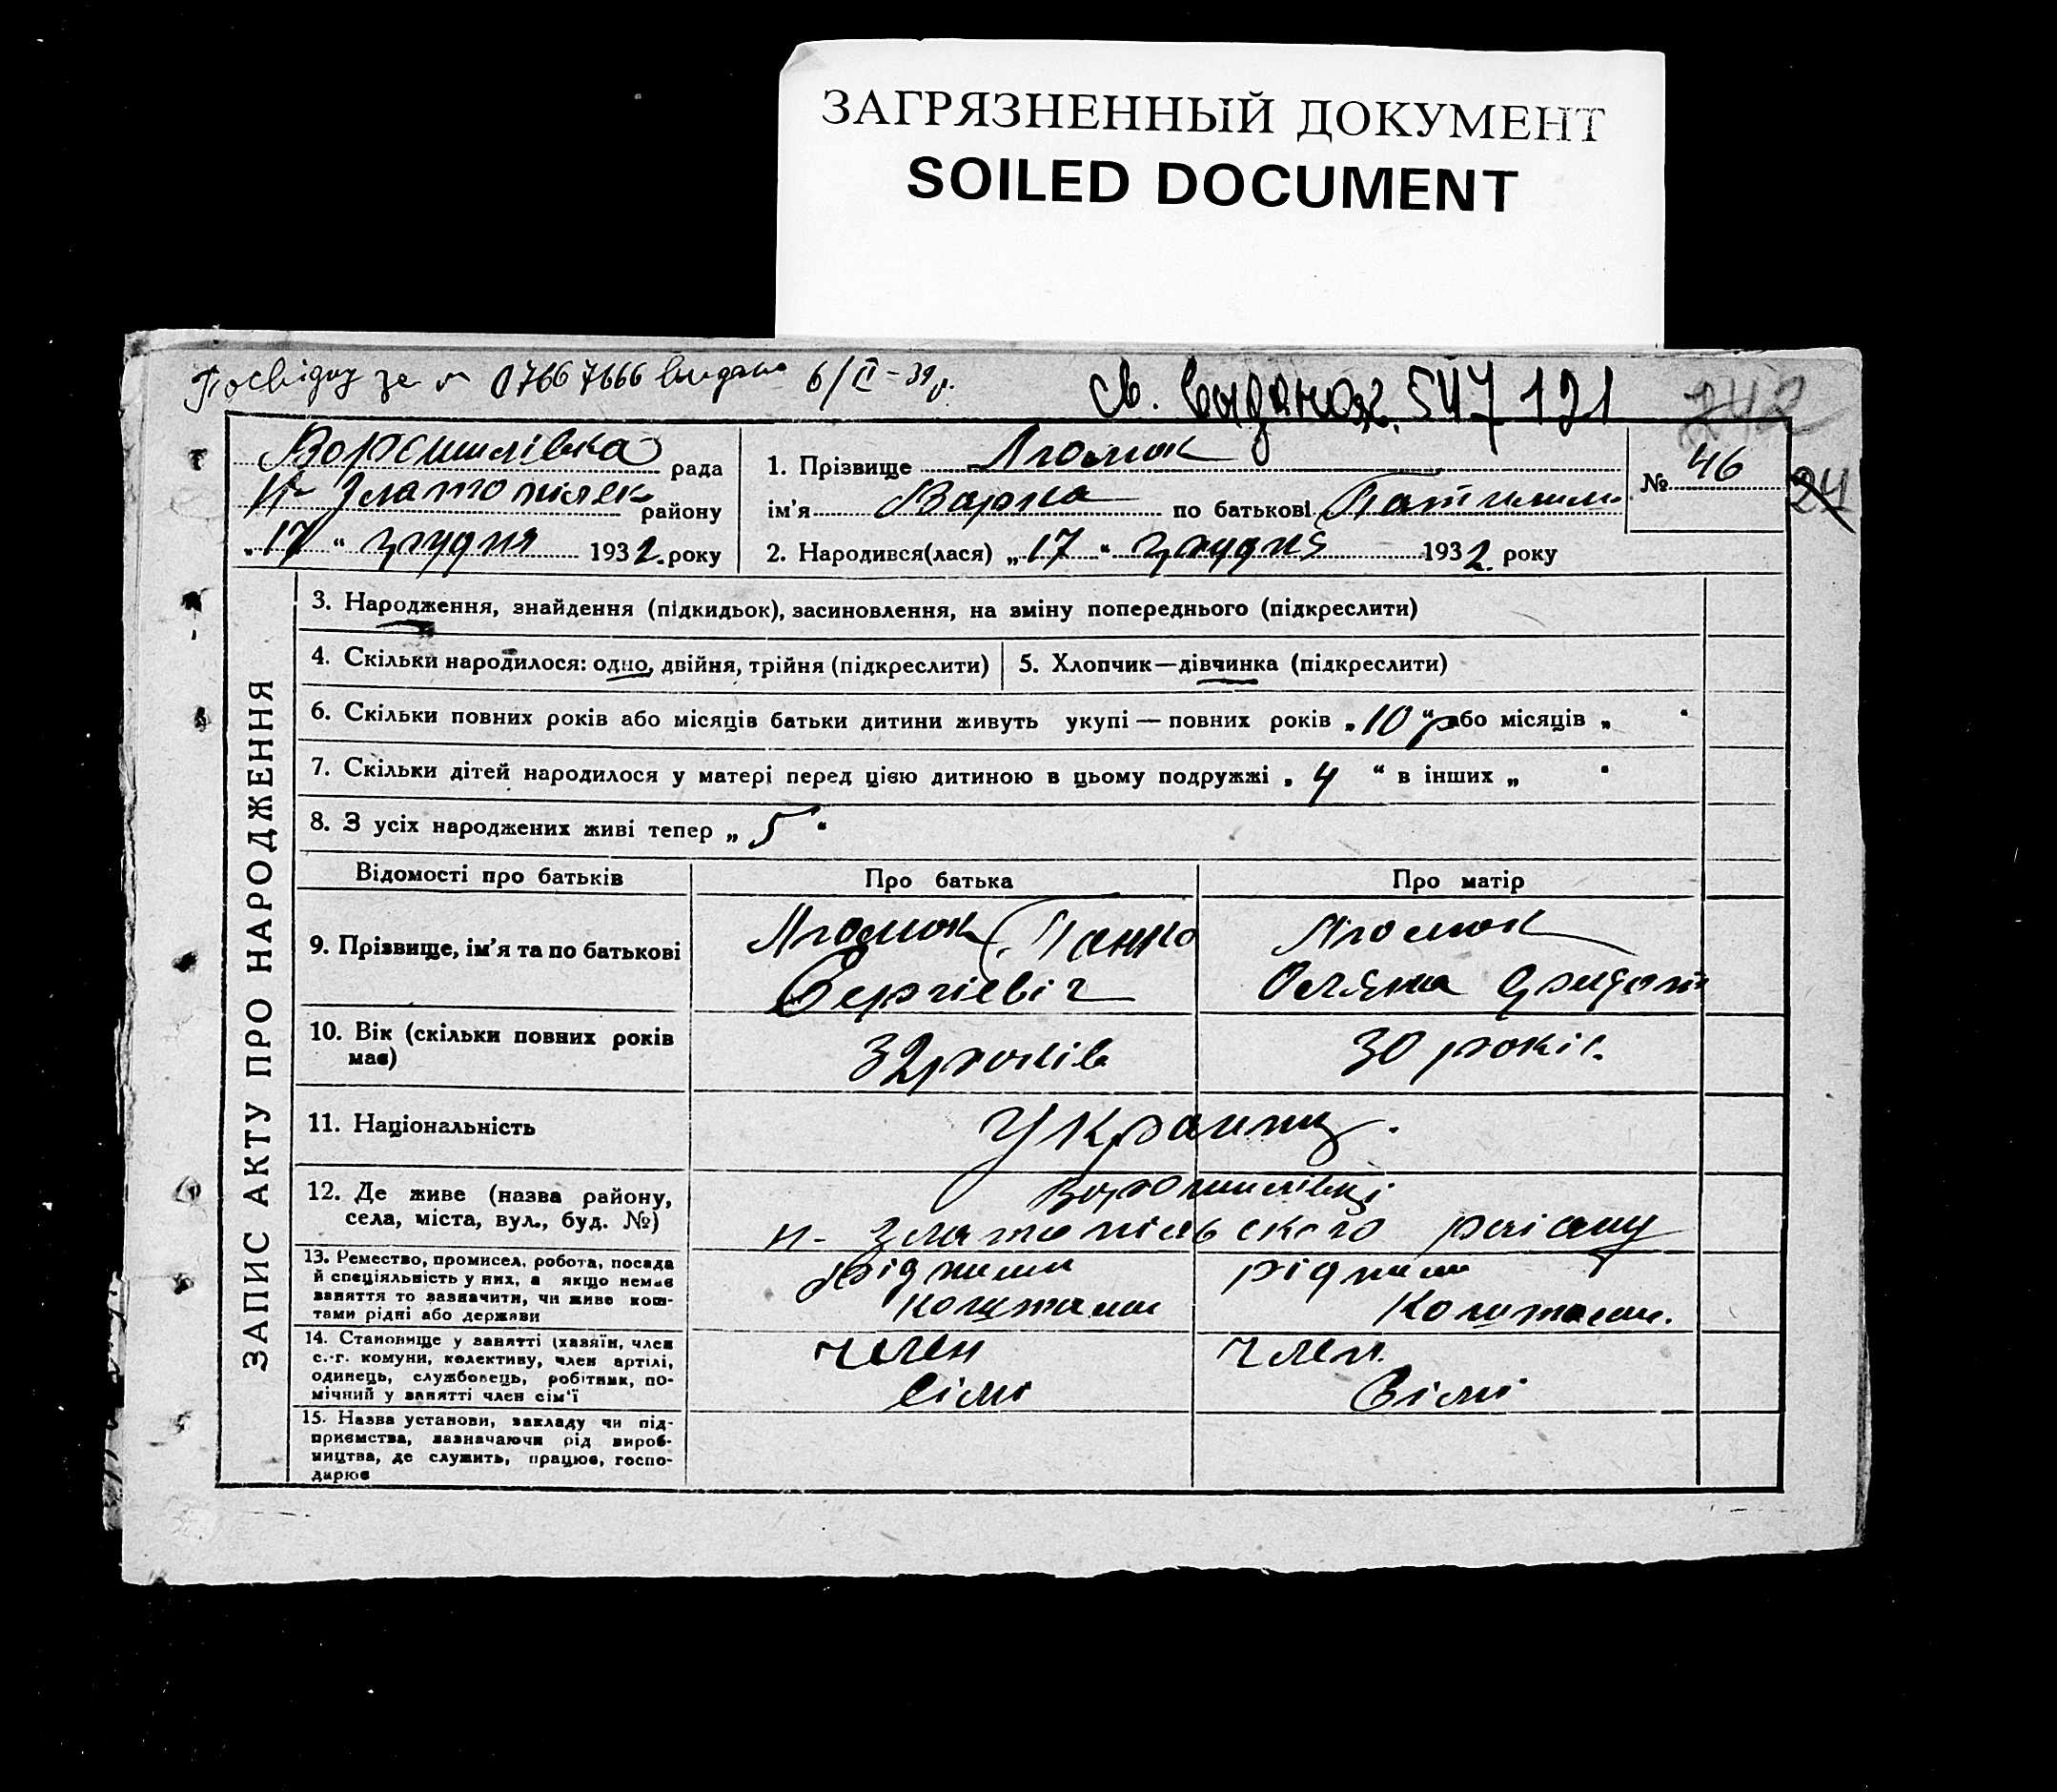 ЗАГРЯЗНЕННЫЙ ДОКУМЕНТ
SOILED DOCUMENT
за № 07667666 6/II-39р.
св. 547121
242
Ворошилівка рада
н- Златопільск району
„17“ грудня 1932 року
1. Прізвище
ім'я Варка по батькові
№ 46
24
2. Народився(лася) „17“ грудня 1932 року
ЗАПИС АКТУ ПРО НАРОДЖЕННЯ
3. Народження, знайдення (підкидьок), засиновлення, на зміну попереднього (підкреслити)
4. Скільки народилося: одно, двійня, трійня (підкреслити)
5. Хлопчик—дівчинка (підкреслити)
6. Скільки повних років або місяців батьки дитини живуть укупі — повних років „10“ р або місяців „ “
7. Скільки дітей народилося у матері перед цією дитиною в цьому подружжі „4“ в інших „ “
8. З усіх народжених живі тепер „5“
Відомості про батьків
Про батька
Про матір
9. Прізвище, ім'я та по батькові
Сергієвіч
10. Вік (скільки повних років
має)
32 років
30 років.
11. Національність
Украинц.
12. Де живе (назва району,
села, міста, вул., буд. №)
Ворошилівці
н- Златопільского раіону
13. Ремество, промисел, робота, посада
й спеціяльність у них, а якщо немає
заняття то зазначити, чи живе кош-
тами рідні або держави
рідними
коштами
рідними
коштами.
14. Становище у занятті (хазяїн, член
с.-г. комуни, колективу, член артілі,
одинець, службовець, робітник, по-
мічний у занятті член сім'ї
член
сімї
член.
сімї
15. Назва установи, закладу чи під-
приємства, зазначаючи рід вироб-
ництва, де служить, працює, госпо-
дарює